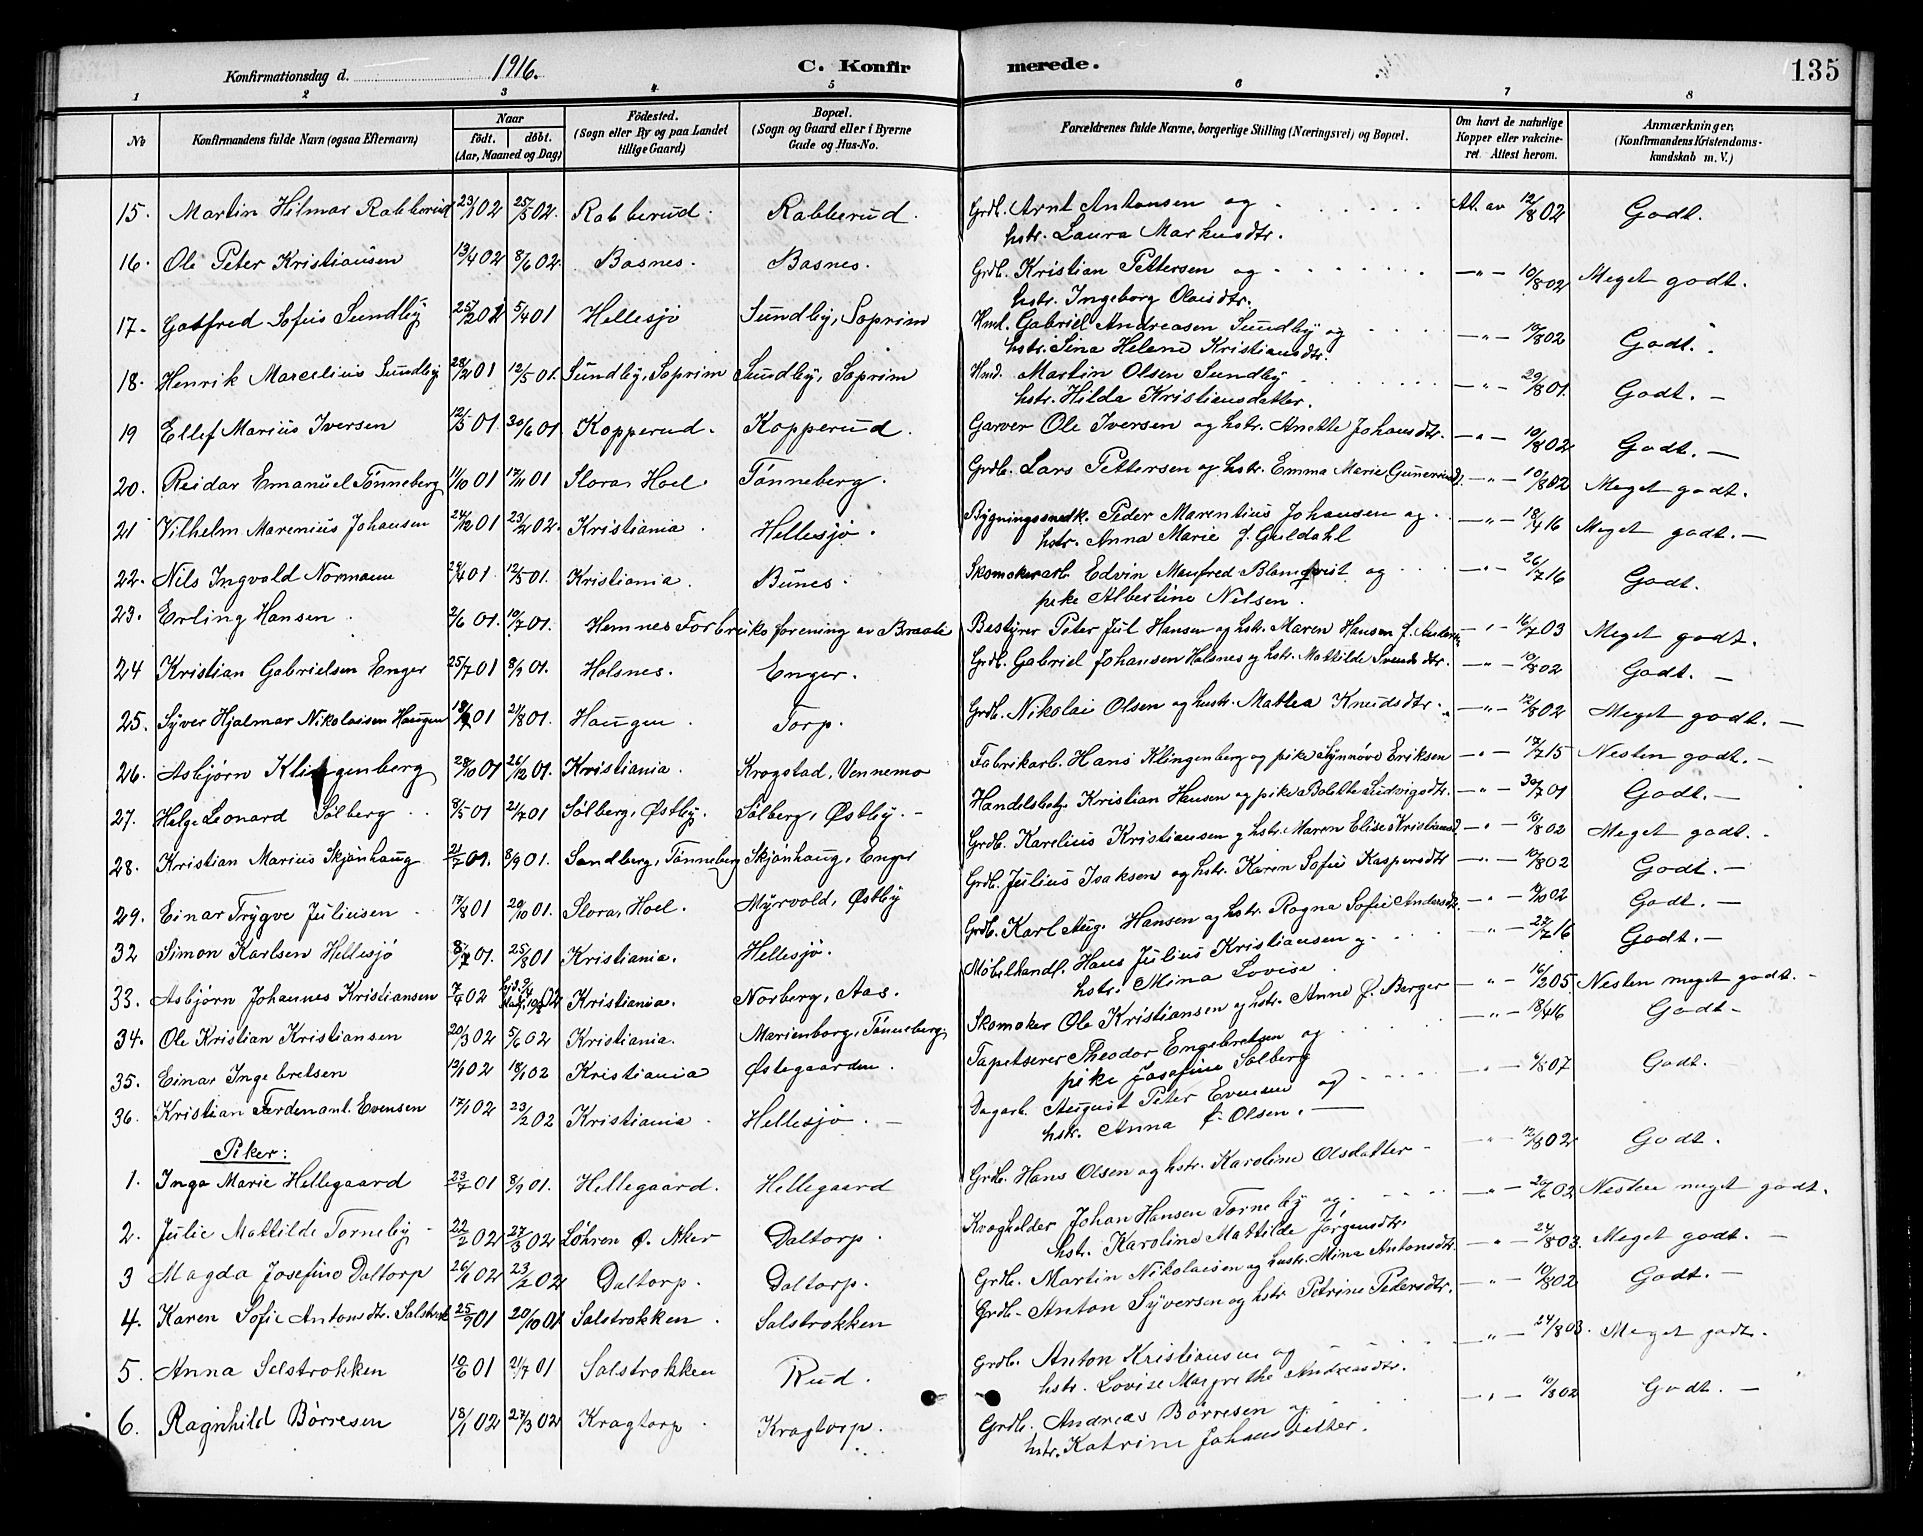 Konfirmationsdag d. 1916. C. Konfirmerede. 135
1 2 3 4 5 6 7 8
No Konfirmandens fulde Navn (ogsaa Efternavn) Naar født. døbt. (Aar, Maaned og Dag) Födested. (Sogn eller By og paa Landet tillige Gaard) Bopæl. (Sogn og Gaard eller i Byerne Gade og Hus-No. Forældrenes fulde Navne, borgerlige Stilling (Næringsvei) og Bopæl. Om havt de naturlige Kopper eller vakcineret. Attest herom. Anmærkninger. (Konfirmandens Kristendomskundskab m. V.)
15. Martin Hilmar Rabberud 23/1 02 25/5 02. Rabberud. Rabberud. Grdb. Arnt Antonsen og At. av 12/8 02 Godt.
hstr. Laura Markusdtr.
16. Ole Peter Kristiansen 13/4 02 8/6 02. Basnes. Basnes. Grdb. Kristian Pettersen og —"— 10/8 02 Meget godt.
hstr. Ingeborg Olaisdtr.
17. Gotfred Sofus Sundby 5/4 01 Hellesjø Sundby, Soprim Hmd. Gabriel Andreasen Sundby og —"— 10/8 02 Godt.
hstr. Sina Helene Kristiansdtr.
18. Henrik Marcelius Sundby 28/2 01 12/5 01. Sundby, Soprim Sundby, Soprim Hmd. Martin Olsen Sundby —"— 29/8 01. Godt. —
hstr. Hilda Kristiansdatter.
19 Ellef Marius Iversen 12/5 01. 30/6 01 Kopperud. Kopperud. Garver Ole Iversen og hstr. Anette Johansdtr. —"— 10/8 02 Godt. —
20. Reidar Emanuel Tønneberg 11/10 01 17/11 01 Slora, Hoel. Tønneberg. Grdb. Lars Pettersen og hstr. Emma Marie —"— 10/8 02 Meget godt.
21 Vilhelm Marenius Johansen 24/12 01 23/2 02. Kristiania. Hellesjø. Bygningssnedk. Peder Marentius Johansen og —"— 18/4 16 Meget godt. —
hstr. Anna Marie f. Guldahl
22. Nils Ingvald Normann 29/4 01. 12/5 01. Kristiania. Bunes. Skomakerarb. Edvin Manfred Blomqvist og —"— 26/7 16 Godt.
pike Albertine Nilsen.
23. Erling Hansen 2/6 01. 10/7 01. Hemnes Forbruksforening av Braate Bestyrer Peter Jul Hansen og hstr. Maren Hansen f. —"— 16/7 03 Meget godt.
24 Kristian Gabrielsen Enger 25/7 01 8/9 01. Holsnes. Enger. Grdb. Gabriel Johansen Holsnes og hstr. Mathilde Svendsdtr. —"— 10/8 02 Godt. —
25. Syver Hjalmar Nikolaisen Haugen 21/8 01. Haugen. Torp. Grdb. Nikolai Olsen og hustr. Mathea Knudsdtr. —"— 12/8 02 Meget godt. —
26. Asbjørn Klingenberg 28/10 01 26/12 01. Kristiania. Krogstad, Vennemo Fabrikarb. Hans Klingenberg og pike Synnøve Eriksen —"— 17/7 15 Nesten godt. —
27. Helge Leonard Sølberg 8/5 01 21/7 01 Sølberg, Østby. Sølberg, Østby. — Handelsbetj. Kristian Hansen og pike Bolette Ludvigsdtr. —"— 30/7 01 Godt. —
28. Kristian Marius Skjønhaug 21/7 01. 8/9 01. Sandberg, Tønneberg Skjønhaug, Enger Grdb. Karelius Kristiansen og hstr. Maren Elise —"— 10/8 02 Meget godt.
Grdb. Julius Isaksen og hstr. Karen Sofie Kaspersdtr —"— 10/8 02 Godt. —
29. Einar Trygve Juliusen 17/8 01 20/10 01. Slora, Hoel. Myrvold, Østby Grdb. Karl Aug. Hansen og hstr. Ragna Sofie Andersdtr. —"— Godt. —
32 Simon Karlsen Hellesjø 25/8 01 Kristiania. Hellesjø. Møbelhandl. Hans Julius Kristiansen og —"— 27/7 16 Godt. —
hstr. Mina Lovise.
33. Asbjørn Johannes Kristiansen 7/4 02 Kristiania. Norberg, Aas. Skomaker Ole Kristiansen og hstr. Anne f. Berger —"— 16/2 05. Nesten meget godt. —
34. Ole Kristian Kristiansen 20/3 02 5/6 02 Kristiania. Marienborg, Tønneberg. Tapetserer Theodor Engebretsen og —"— 18/4 16 Godt —
pike Josefine Solberg
35. Einar Ingebretsen 18/1 02 Kristiania Østegaarden. Dagarb. August Peter Evensen og —"— 07 Godt.
hstr. Anna f. Olsen. —
36. Kristian Ferdenant. Evensen 17/1 02 23/2 02 Kristiania Hellesjø. —
Piker:
1. Inga Marie Hellegaard 23/7 01 8/9 01. Hellegaard. Hellegaard Grdb. Hans Olsen og hstr. Karoline Olsdatter — —"— 12/8 02 Godt.
2. Julie Mathilde Torneby 22/2 02 27/3 02 Løhren Ø. Aker Daltorp. Kroghelder Johan Hansen Torneby og —"— 02 Nesten meget godt.
hstr. Karoline Mathilde Jørgensdtr.
3 Magda Josefine Daltorp 26/1 02 23/2 02 Daltorp. Daltorp. Grdb. Martin Nikolaisen og hustr. Mina Antonsdtr. —"— 24/8 03. Meget godt. —
4. Karen Sofie Antonsdtr. 25/9 01 20/10 01 Salstrokken. Salstrokken Grdb. Anton Syversen og hstr Petrine Pedersdtr. —"— 10/8 02 Godt. —
5. Anna Salstrokken 10/6 01 21/7 01 Salstrokken Rud. Grdb. Anton Kristiansen og —"— 24/8 03. Meget godt.
hstr. Lovise Margrethe Andreasdtr.
6. Ragnhild Børresen 18/1 02 27/3 02 Kragtorp. Kragtorp. Grdb. Andreas Børresen og —"— 10/8 02 Godt. —
hstr. Katrine Johansdatter.